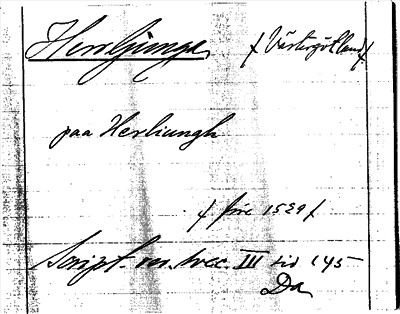 Herrljunga /Västergötland/
paa Herliungh
/ före 1529 /
Script. rer. svec. III sid 145
Da